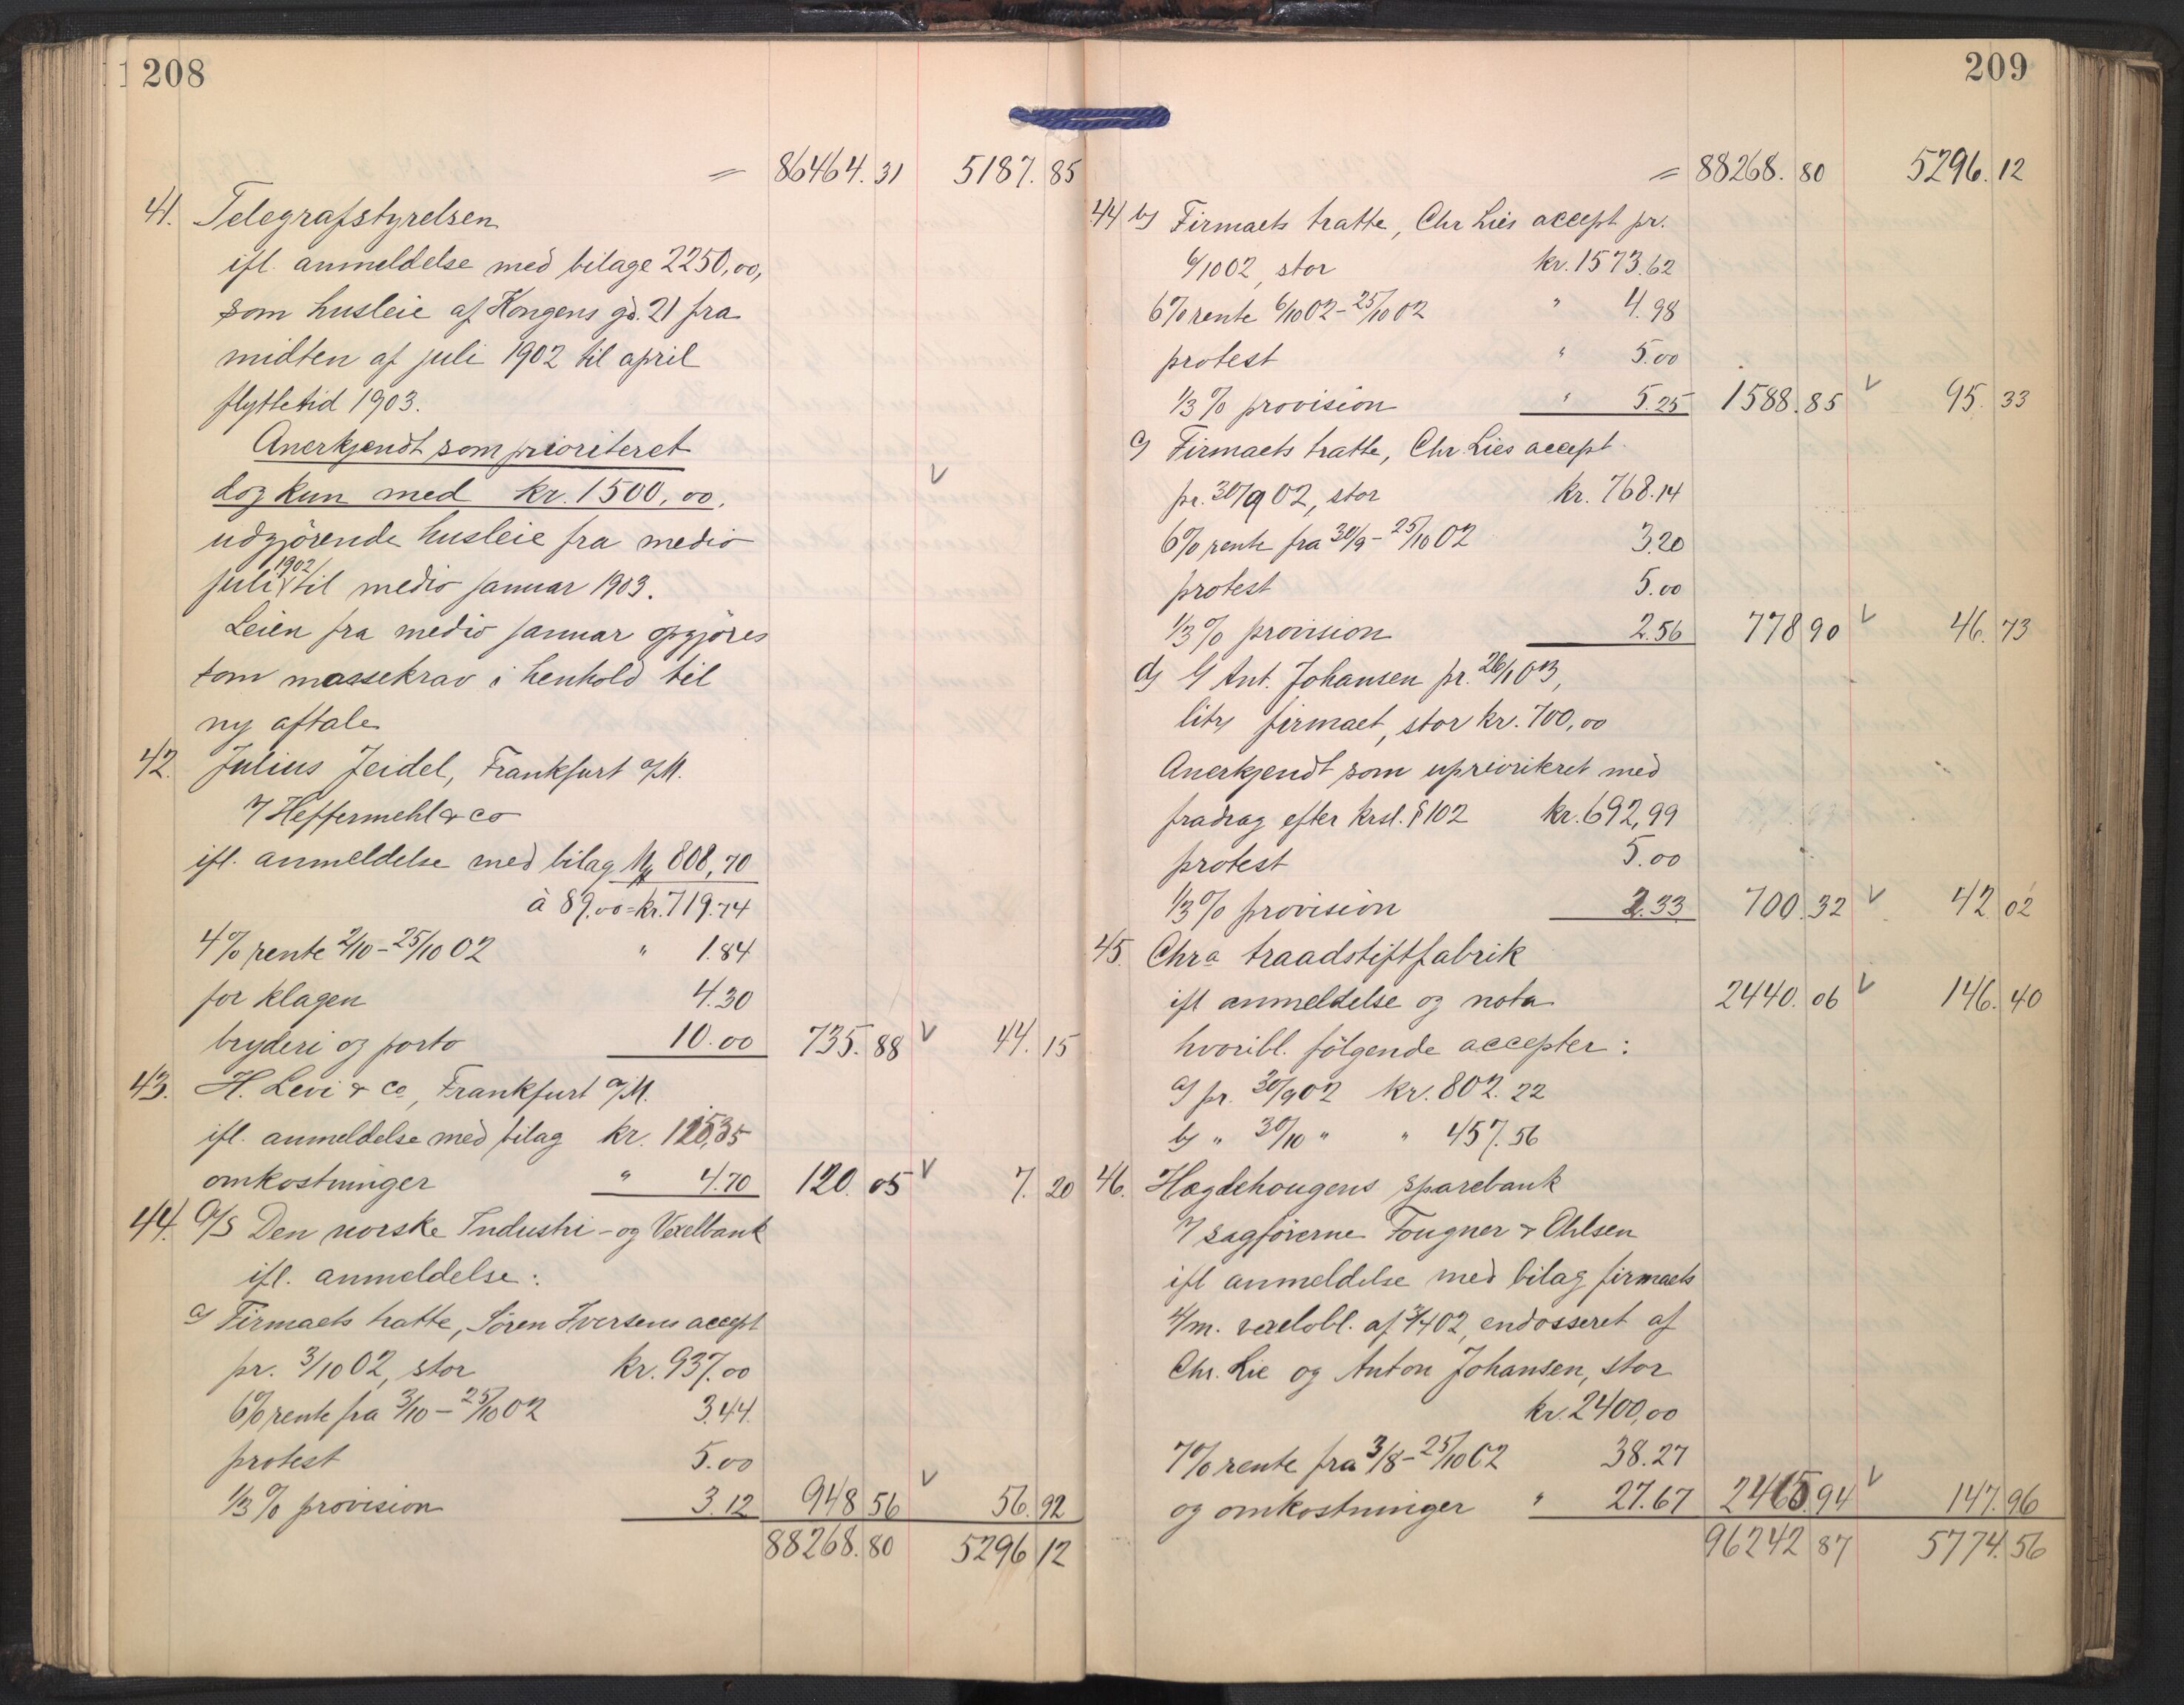 208
= 86464.31 5187.85
41. Telegrafstyrelsen
ifl. anmeldelse med bilage 2250,00,
som husleie af Kongens gd. 21 fra
midten af juli 1902 til april
flyttetid 1903.
Anerkjendt som prioriteret
dog kun med kr. 1500,00, V
udgjörende husleie fra medio
juli 1902 til medio januar 1903.
Leien fra medio januar opgjöres
som massekrav i henhold til
ny aftale
42. Julius Jeidel, Frankfurt a/M.
v/ Heffermehl & co
ifl. anmeldelse med bilag Mk 808,70
à 89.00 = kr. 719.74
4% rente 2/10 - 25/10 02 " 1.84
for klagen 4.30
bryderi og porto 10.00 735.88 V 44.15
43. H. Levi & Co, Frankfurt a/M.
ifl. anmeldelse med bilag kr. 115,35
omkostninger " 4.70 120.05 V 7.20
44. A/S Den norske Industri- og Vexelbank
ifl. anmeldelse:
a) Firmaets tratte, Sören Iversens accept
pr. 3/10 02, stor kr. 937.00
6% rente fra 3/10 - 25/10 02 3.44
protest 5.00
1/3 % provision 3.12 948 56 V 56.92
88268.80 5296 12
209
= 88268.80 5296.12
44 b) Firmaets tratte, Chr Lies accept pr.
6/10 02, stor kr. 1573.62
6% rente 6/10 02 - 25/10 02 " 4.98
protest " 5.00
1/3 % provision " 5.25 1588.85 V 95.33
c) Firmaets tratte, Chr. Lies accept
pr. 30/9 02, stor kr. 768.14
6% rente fra 30/9 - 25/10 02 3.20
protest 5.00
1/3 % provision 2.56 778 90 V 46.73
d) v/ Ant. Johansen pr. 26/1 03,
litr. firmaet, stor kr. 700,00
Anerkjendt som uprioriteret med
fradrag efter krsl. § 102 kr. 692,99
protest 5.00
1/3 % provision 2.33 700.32 V 42 02
45. Chra traadstiftfabrik
ifl anmeldelse og nota 2440.06 V 146.40
hvoribl. fölgende accepter:
a) pr. 30/9 02 kr. 802.22
b) " 30/10 " " 457.56
46. Hægdehougens sparebank
v/ sagförerne Fougner & Ohlsen
ifl anmeldelse med bilag firmaets
4/m. vexelobl. af 3/4 02, endosseret af
Chr. Lie og Anton Johansen, stor
kr. 2400,00
7% rente fra 3/8 - 25/10 02 38.27
og omkostninger " 27.67 2465.94 V 147.96
96242 87 5774.56